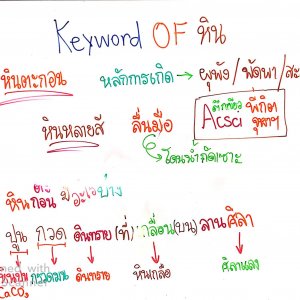 Keyword OF หิน
หินตะกอน หลักการเกิด → ผุพัง / พัดพา / สะ
หินหลายสี ลื่นมือ ตึกเคียว Acsci พี่กิต จุฬาฯ
โดนน้ำกัดเซาะ
หิน ตะกอน มีอะไรบ้าง
ปูน กวด หินทราย (ที่) กลื่อน (บน) ลาน ศิลา
หินปูน กรวดมน หินทราย หินเกลือ ศิลาแลง
CaCO3